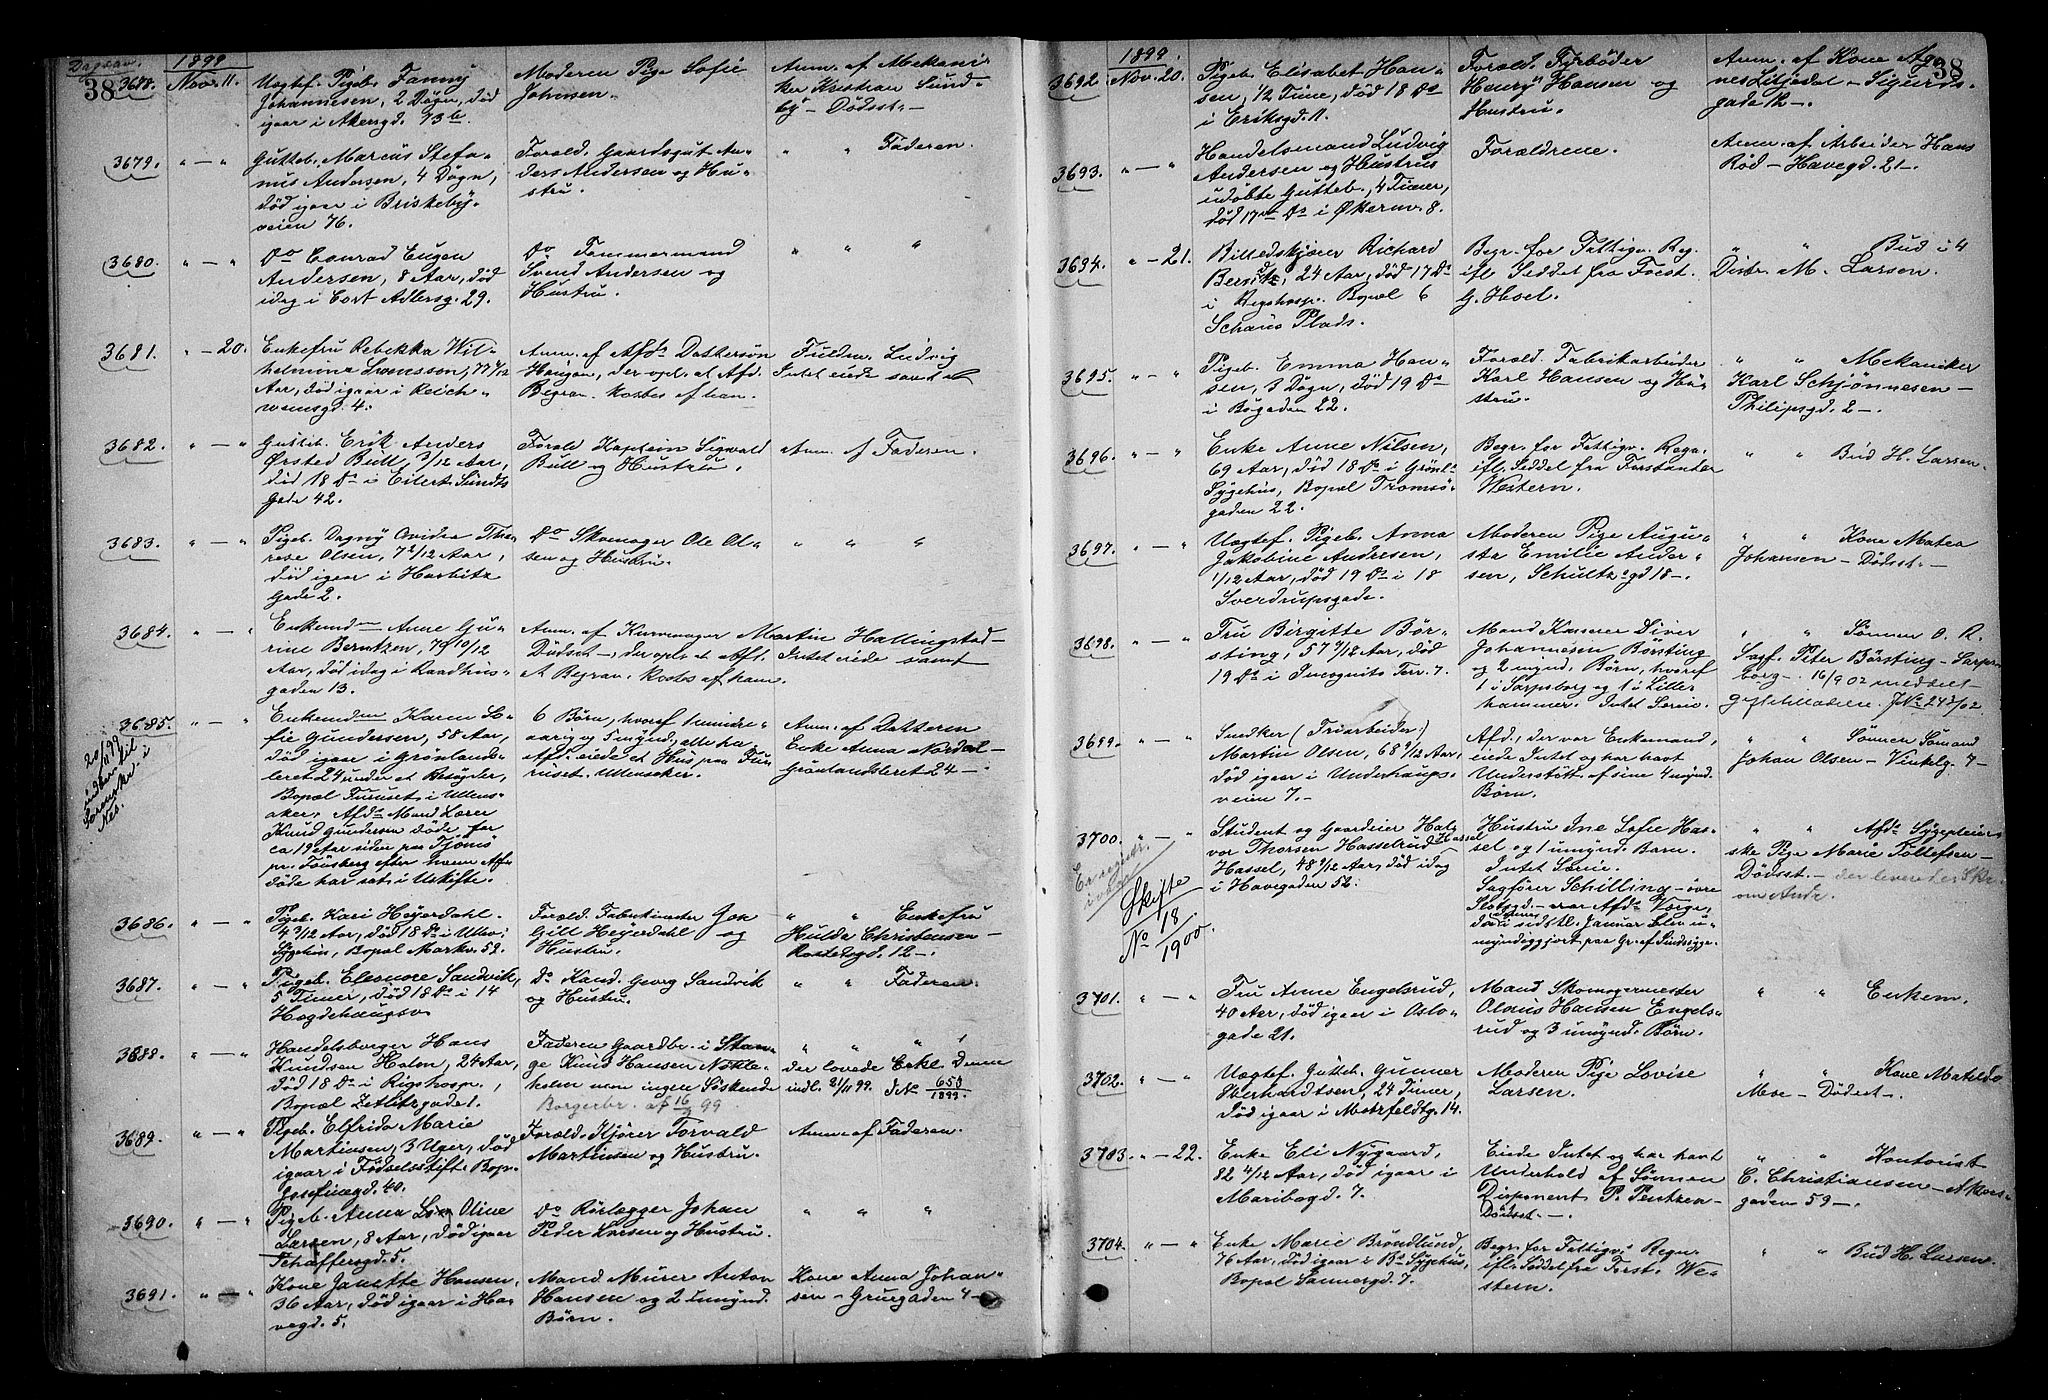 Dagsav.
1899
38
3678. Nov. 11. Uægtef. Pigeb. Fanny
Johannesen, 2 Døgn, død
igaar i Akersgd. 73 b.
Moderen Pige Sofie
Johnsen.
Anm. af Mekani-
ker Kristian Sund-
by - Dødsst.-
3679. " — " Gutteb. Marcus Stefa-
nus Andersen, 4 Døgn,
død igaar i Briskeby-
veien 76.
Foræld. Gaardsgut An-
ders Andersen og Hu-
stru.
" " Faderen.
3680. " — " Do Conrad Eugen
Andersen, 8 Aar, død
idag i Cort Adlersg. 29.
Do Tømmermand
Svend Andersen og
Hustru.
" " "
3681. " — 20. Enkefru Rebekka Wil-
helmina Svensson, 77
Aar, død igaar i Reich-
weinsgd. 4.
Anm. af Afds Dattersøn Fuldm. Ludvig
Haugan, der opl. at Afd. Intet eiede samt at
Begrav. kostes af ham.
3682. " — " Gutteb. Erik Anders
Ørsted Bull, 3/12 Aar,
død 18 Ds i Eilert Sundts
Gade 42.
Foræld Kaptein Sigvald
Bull og Hustru.
Anm. af Faderen.
3683. " — " Pigeb. Dagny Ovidia The-
rese Olsen, 7 2/12 Aar,
død igaar i Harbitz
Gade 2.
Do Skomager Ole Ol-
sen og Hustru.
" " "
3684. " — " Enkemdm Anne Gu-
rine Berntzen, 76 10/12
Aar, død idag i Raadhus-
gaden 13.
Anm. af Kurvmager Martin Hallingstad -
Dødsst. -, der opl. at Afd. Intet eiede samt
at Begrav. kostes af ham.
3685. " — " Enkemdm Karen So-
fie Gundersen, 58 Aar,
død igaar i Grønlands-
leret 24 under et Besøg der,
Bopæl Furuset i Ullens-
aker. Afds Mand Lærer
Knud Gundersen døde for
ca 19 Aar siden paa Tjømø
pr. Tønsberg efter hvem Afdø
døde har sat i Uskifte.
20/11 99
indber. til
Sorenskr. i
Nes.
6 Børn, hvoraf 1 mindre-
aarig og 5 mynd., alle her.
Afd. eiede et Hus paa Fu-
ruset, Ullensaker.
Anm. af Datteren
Enke Anna Nordal -
Grønlandsleret 24 -.
3686. " — " Pigeb. Kari Heyerdahl,
4 3/12 Aar, død 18 Ds i Ullev.
Sygehus, Bopæl Markv. 52.
Foræld. Fabrikmester Jon
Gill Heyerdahl og
Hustru.
" " Enkefru
Hulda Christensen -
Rostedsgd. 12 -.
3687. " — " Pigeb. Eleonore Sandvik,
5 Timer, død 18 Ds i 14
Hægdehaugsv.
Do Kand. Georg Sandvik
og Hustru.
" " Faderen.
3688. " — " Handelsborger Hans
Knudsen Holm, 24 Aar,
død 18 Ds i Rigshosp.,
Bopæl Zetlitzgade 1.
Faderen Gaardbr. i Stan-
ge Knud Hansen Nøkle-
holm men ingen Søskende
Borgerbr. af 16/9 99
" " "
der lovede Erkl. Denne
indl. 21/11 99. J.No 650/1899.
3689. " — " Pigeb. Elfrida Marie
Martinsen, 3 Uger, død
igaar i Fødselsstift. Bop.
Josefinegd. 40.
Foræld. Kjører Torvald
Martinsen og Hustru.
Anm. af Faderen.
3690. " — " Pigeb. Anna Oline
Larsen, 8 Aar, død igaar
Schaffersgd. 5.
Do Rørlægger Johan
Peder Larsen og Hustru.
" " "
3691. " — " Kone Janette Hansen,
36 Aar, død igaar i Ha-
vegd. 5.
Mand Murer Anton
Hansen og 2 umynd.
Børn.
Kone Anna Johan-
sen - Gruegaden 4 -
1899.
38
3692. Nov. 20. Pigeb. Elisabet Han-
sen, 1/2 Time, død 18 Ds
i Eriksgd. 11.
Foræld. Fyrbøder
Henry Hansen og
Hustru.
Anm. af Kone Ag-
nes Liljedal - Sigurds-
gade 12 -.
3693. " — " Handelsmand Ludvig
Andersen og Hustrus
udøbte Gutteb., 4 Timer,
død 17de Ds i Økernv. 8.
Forældrene.
Anm. af Arbeider Hans
Rød - Havegd. 21 -.
3694. " — 21. Billedskjærer Richard
24 Aar, død 17 Ds
i Rigshosp. Bopæl 6
Schous Plads.
Begr. for Fattigv. Reg.
ifl. Seddel fra Forst.
G. Hoel.
" " Bud i 4
Distr. M. Larsen.
3695. " — " Pigeb. Emma Han-
sen, 3 Døgn, død 19 Ds
i Bogaden 22.
Foræld. Fabrikarbeider
Karl Hansen og Hu-
stru.
" " Mekaniker
Karl Schjønnesen -
Philipsgd. 2 -.
3696. " — " Enke Anne Nilsen,
69 Aar, død 18 Ds i Grønl.
Sygehus, Bopæl Tromsø-
gaden 22.
Begr. for Fattigv. Regn.
ifl. Seddel fra Forstander
Western.
" " Bud H. Larsen.
3697. " — " Uægtef. Pigeb. Anna
Jakobine Andersen,
1/12 Aar, død 19 Ds i 18
Sverdrupsgade.
Moderen Pige Augu-
sta Emilie Ander-
sen, Schultzsgd 18 -.
" " Kone Matea
Johansen - Dødsst. -
3698. " — " Fru Birgitte Bør-
sting, 57 7/12 Aar, død
19 Ds i Incognito Terr. 7.
Mand Kasserer Diver
Johannesen Børsting
og 2 mynd. Børn, hvoraf
1 i Sarpsborg og 1 i Lille-
hammer. Intet Særeie.
" " Sønnen O. R.
Sagf. Peter Børsting - Sarps-
borg -. 16/9 02 meddelt
Skiftetilladelse. J.No 243/02.
3699. " — " Snedker (Friarbeider)
Martin Olsen, 68 9/12 Aar,
død igaar i Underhaugs-
veien 7. -
Afd., der var Enkemand,
eiede Intet og har havt
Understøtt. af sine 4 mynd.
Børn.
" " Sønnen Sømand
Johan Olsen - Vinkelg. 4 -
3700. " — " Student og Gaardeier Hal-
vor Thorsen Hasselrud Hassel
Hassel, 48 9/12 Aar, død idag
i Havegaden 52.
Skifte
No 18/1900.
Hustru Ine Sofie Has-
sel og 1 umynd. Barn.
Intet Særeie.
Sagfører Schilling - øvre
Slotsgd. - var Afds Værge,
da Afdøde sidstl. Januar blev u-
myndiggjort paa Gr. af Sindssyge.
" " Afds Sygepleier-
ske Pige Marie Tollefsen -
Dødsst. - der leverede Skr.
om Andr.
3701. " — " Fru Anne Engelsrud,
40 Aar, død igaar i Oslo-
gade 21.
Mand Skomagermester
Olaus Hansen Engels-
rud og 3 umynd. Børn.
" " Enkem.
3702. " — " Uægtef. Gutteb. Gunner
Eberhardtsen, 24 Timer,
død igaar i Motzfeldtg. 14.
Moderen Pige Lovise
Larsen.
" " Kone Matilde
Moe - Dødsst -.
3703. " — 22. Enke Eli Nygaard,
82 4/12 Aar, død igaar i
Maribogd. 7.
Eiede Intet og har havt
Underhold af Sønnen
Disponent P. Pentzen -
Dødsst. -.
" " Kontorist
C. Christiansen - Akers-
gaden 59 -.
3704. " — " Enke Marie Brøndlund,
76 Aar, død igaar i Bs Sygehus,
Bopæl Sannergd. 7.
Begr. for Fattigv. Regn.
ifl. Seddel fra Forst. We-
stern.
" " Bud H. Larsen.